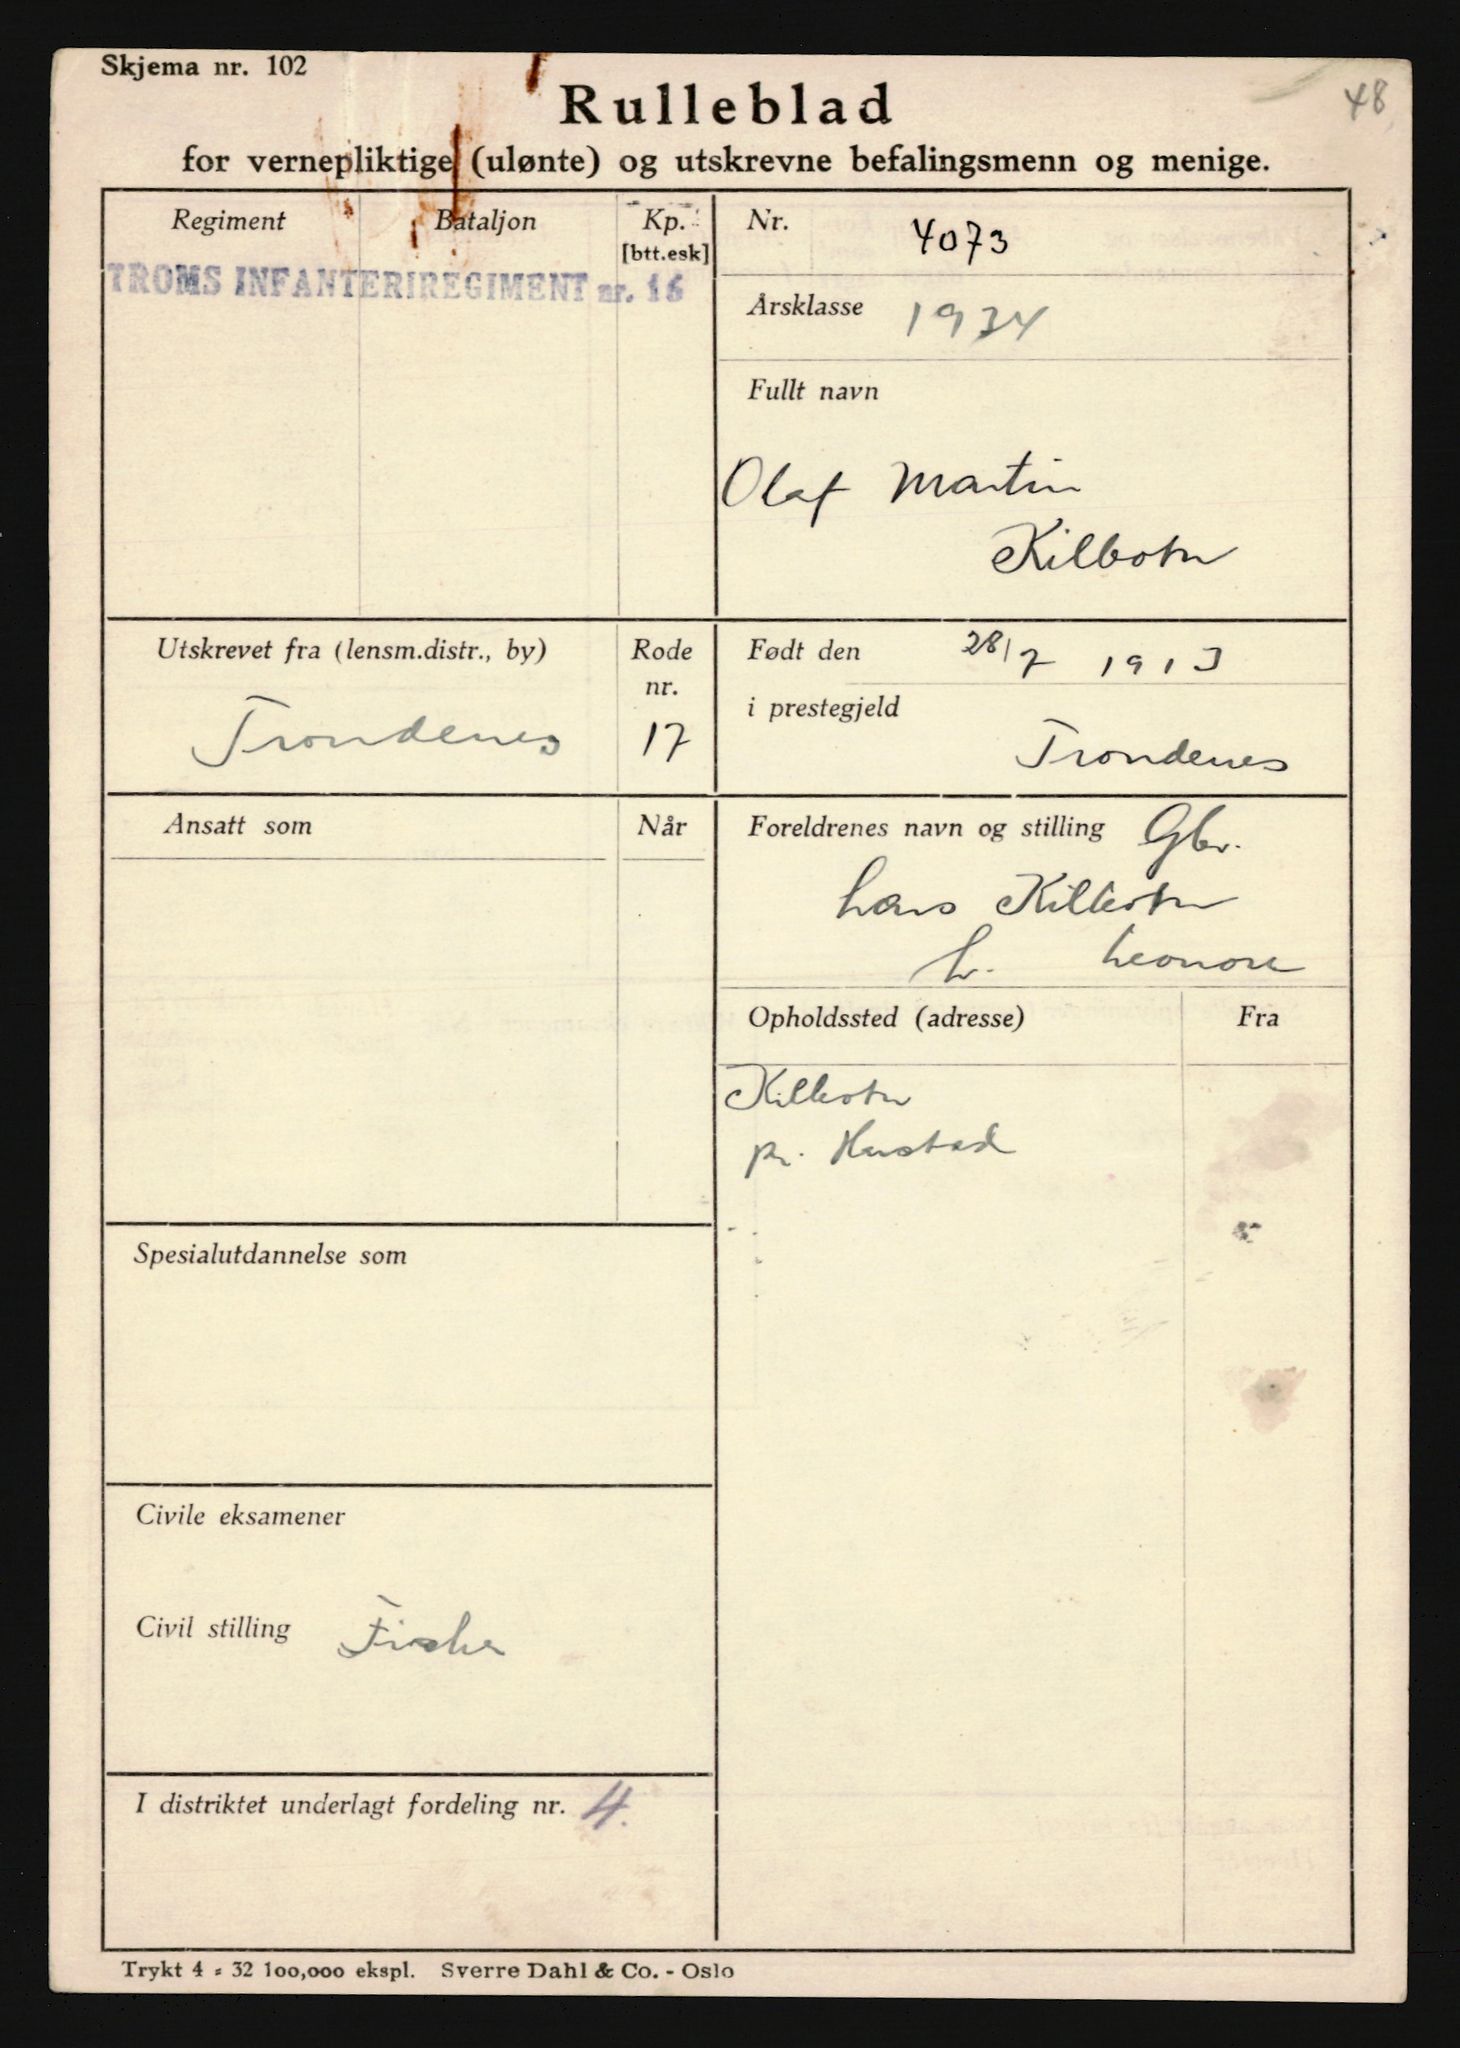 Skjema nr. 102
48
Rulleblad
for vernepliktige (ulønte) og utskrevne befalingsmenn og menige.
Regiment Bataljon Kp. [btt.esk]
TROMS INFANTERIREGIMENT nr. 16
Nr. 4073
Årsklasse 1934
Fullt navn
Olaf Martin
Kilbotn
Utskrevet fra (lensm.distr., by)
Trondenes
Rode nr.
17
Født den 28/7 1913
i prestegjeld
Trondenes
Ansatt som Når
Foreldrenes navn og stilling Gbr.
Lars Kilbotn
h. Leonore
Opholdssted (adresse) Fra
Kilbotn
pr. Harstad
Spesialutdannelse som
Civile eksamener
Civil stilling Fisker
I distriktet underlagt fordeling nr. 4.
Trykt 4 - 32 100,000 ekspl. Sverre Dahl & Co. - Oslo